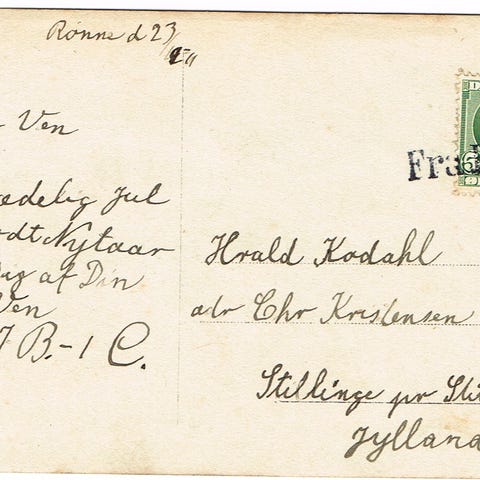 Rønne d 23/
Ven
edelig Jul
dt Nytaar
Dig af Din
Ven
J B.-1 C.
Fra
Hrald Kodahl
adr Chr Kristensen
Stillinge pr Sli
Jylland